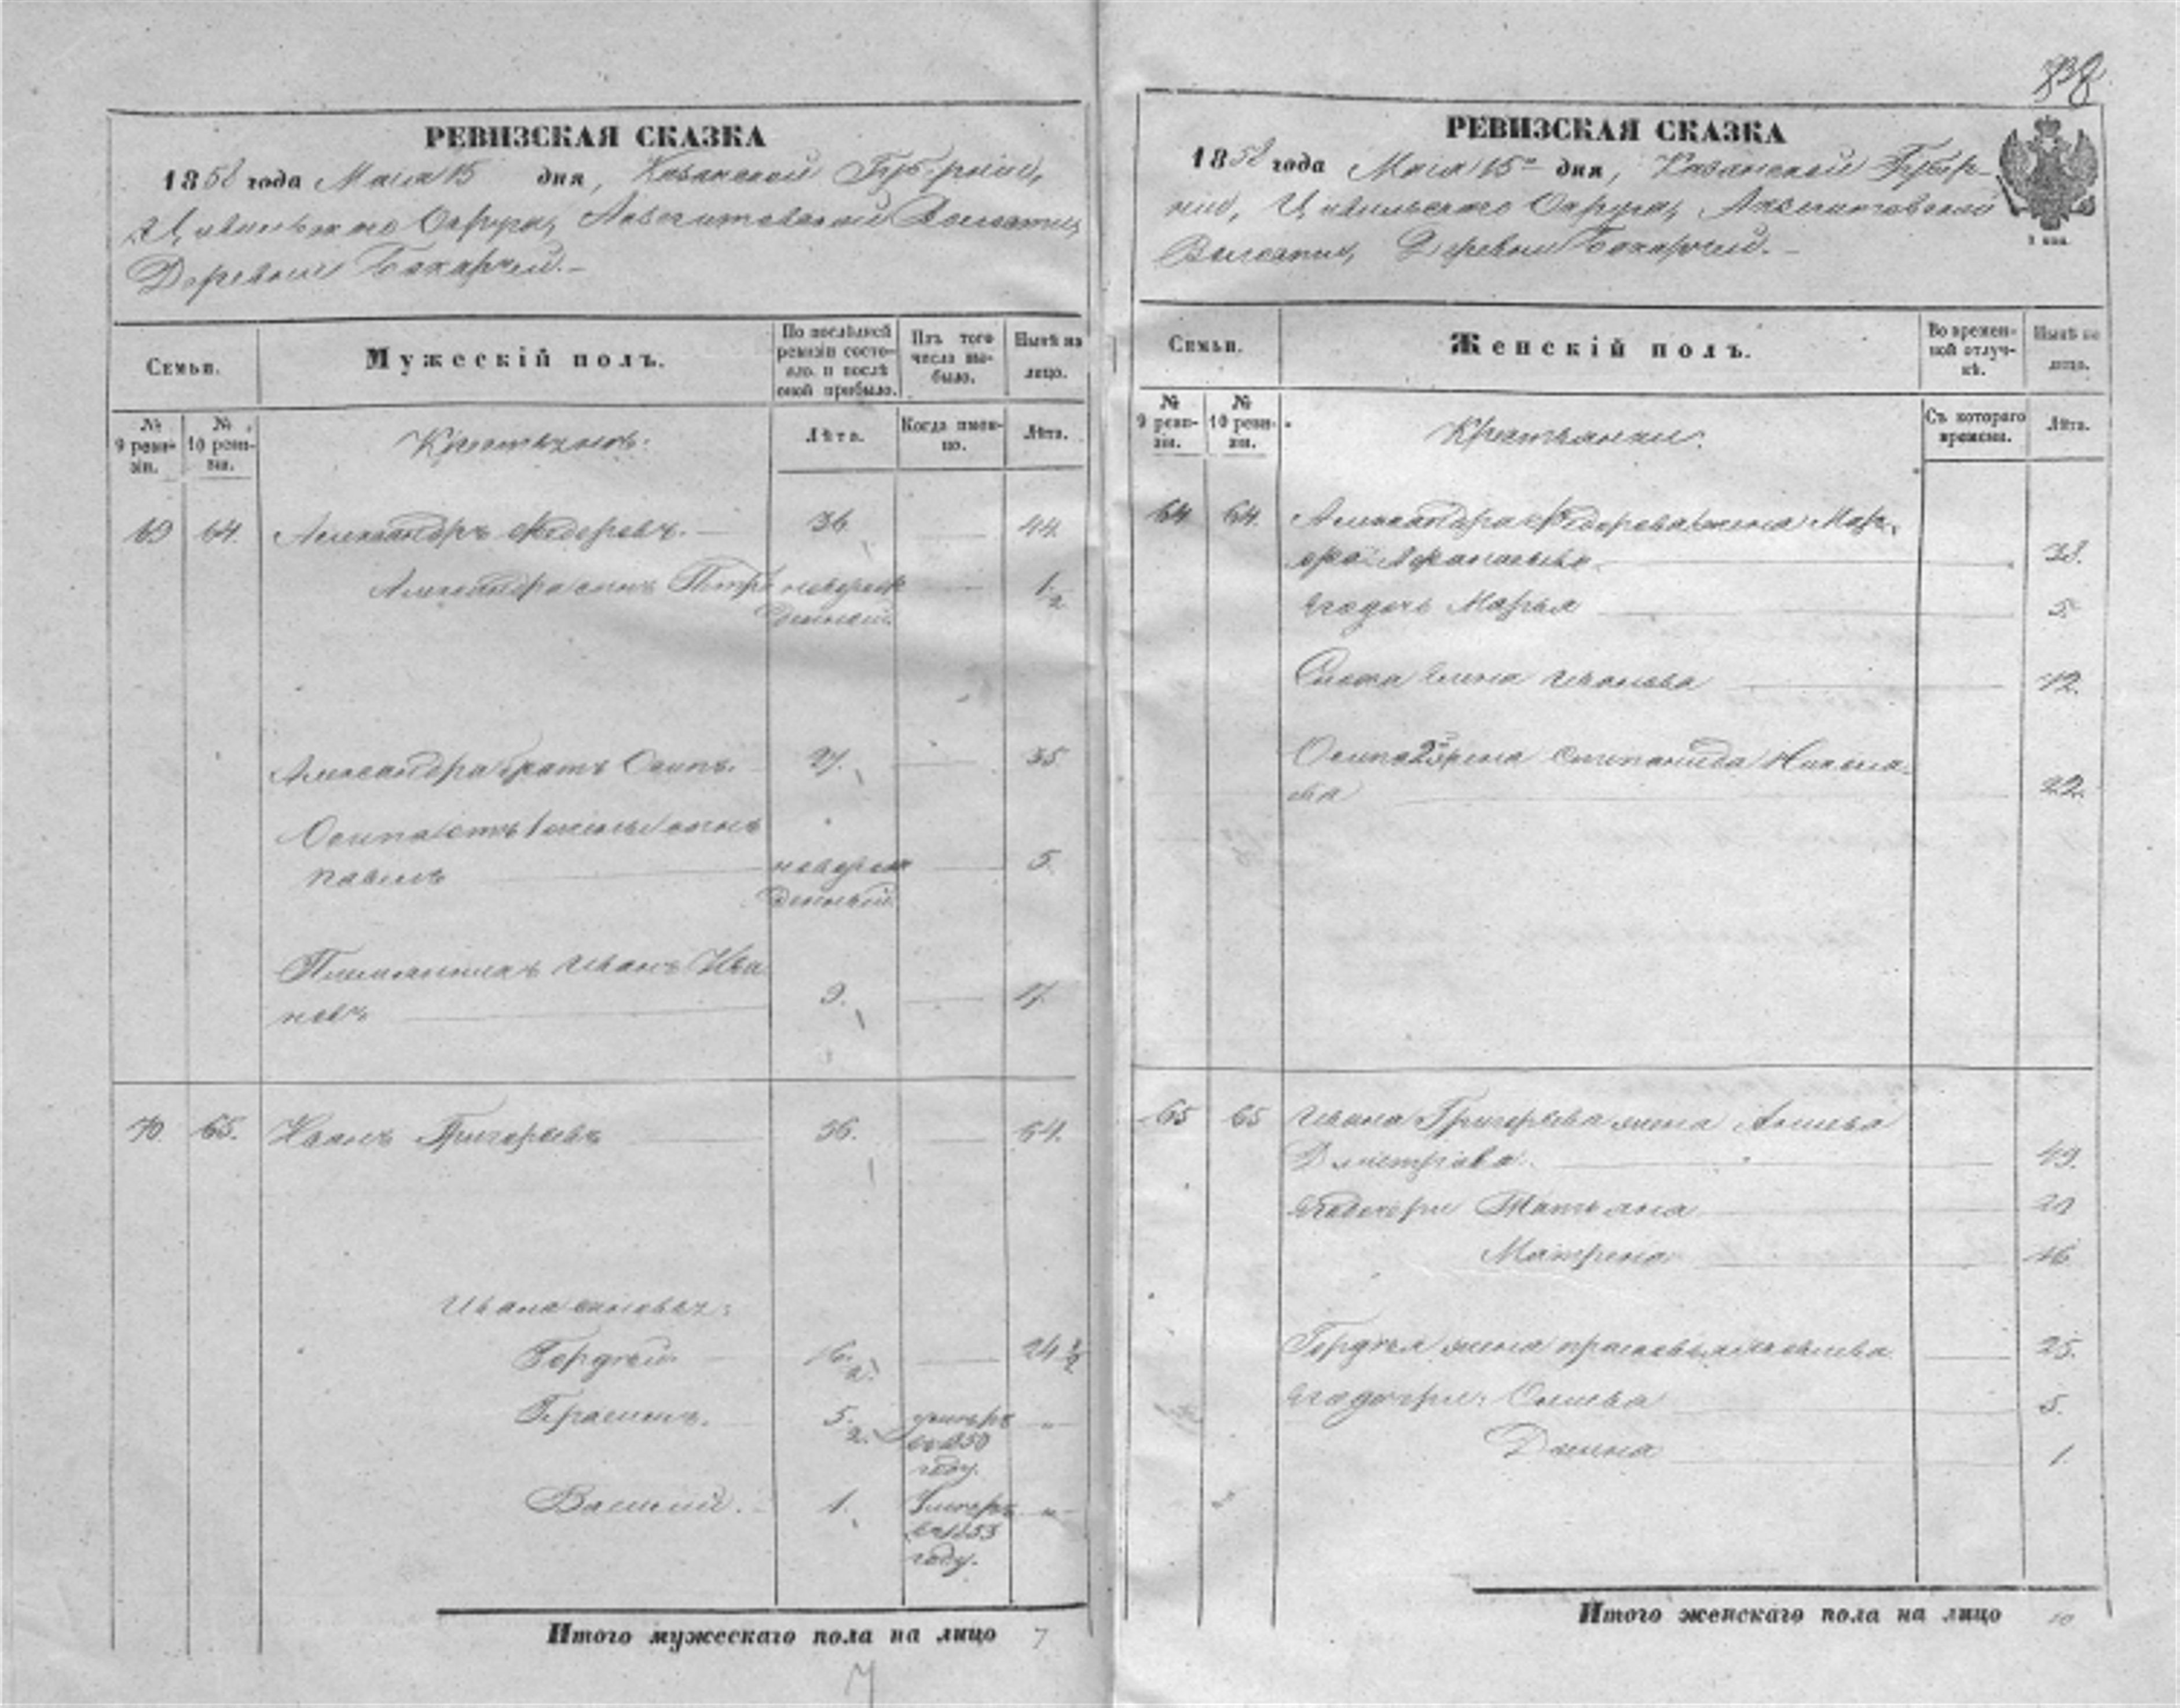 РЕВИЗСКАЯ СКАЗКА
1858 года Маія 15 дня, Казанской Губерніи,
Цивильскаго Округа, Волости,
Деревни
Семьи.
Мужескій полъ.
По послѣдней ревизіи состояло. и послѣ оной прибыло.
Изъ того числа выбыло.
Нынѣ на лицо.
№ 9 ревизіи.
№ 10 ревизіи.
Крестьянъ:
Лѣта.
Когда именно.
Лѣта.
69 64. Александръ Федоровъ. — 36 — 44.
Александра сынъ Петръ новорож — 1/2
денный.
Александра братъ Осипъ. 27. — 35
Осипа отъ 1 жены сынъ
Павелъ — новорож — 5.
денный
Племянникъ Иванъ Ива
новъ — 9. — 17.
70 65. Иванъ Григорьевъ — 56. — 64.
Ивана сыновья:
Гордѣй — 16. 2. — 24 1/2
Герасимъ. — 5. 2. умеръ „
въ 1850
году.
Василий. — 1. Умеръ „
въ 1855
году.
Итого мужескаго пола на лицо 7
7
РЕВИЗСКАЯ СКАЗКА
1858 года Маія 15го дня, Казанской Губер-
ніи, Цивильскаго Округа,
Волости, Деревни
Семьи.
Женскій полъ.
Во временной отлучкѣ.
Нынѣ на лицо.
№ 9 ревизіи.
№ 10 ревизіи.
Крестьянки:
Съ котораго времени.
Лѣта.
64 64. Александра Федорова жена
— 38.
Марья — 5.
Анна Иванова — 72.
Осипа 2я жена Степанида Никола
ева — 22.
65 65 Ивана Григорьева жена
Дмитріева. — 49.
Татьяна — 21
Матрена — 16
Гордѣя жена Прасковья — 25.
— 5.
— 1
Итого женскаго пола на лицо 10